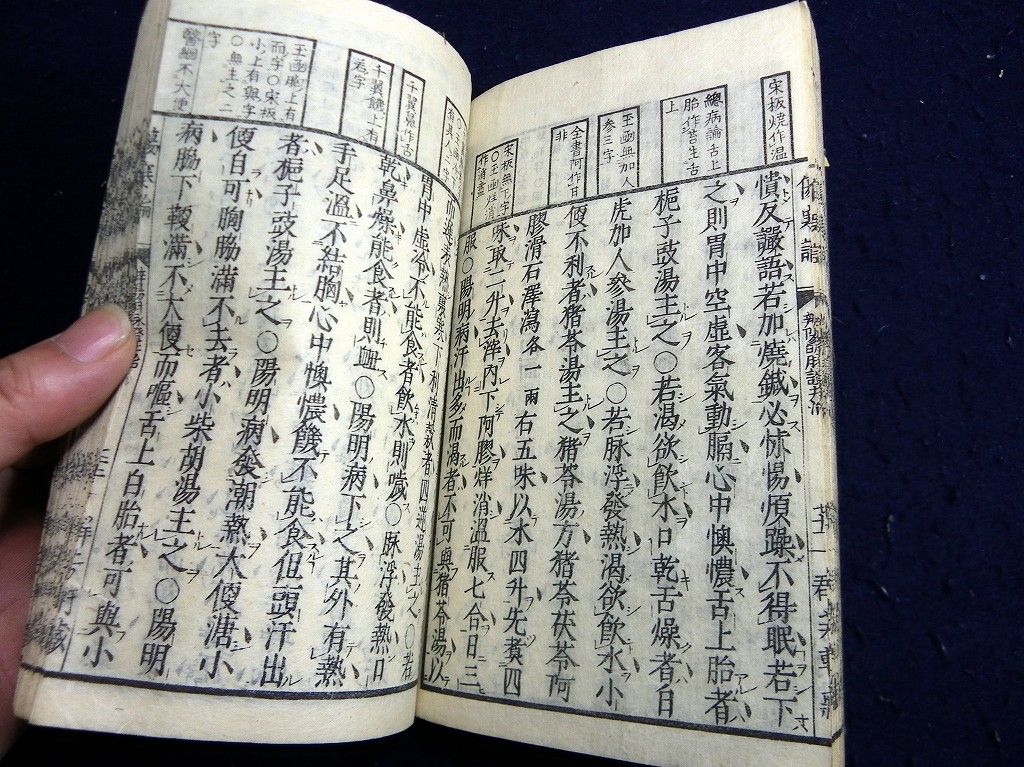 宋板燒作温
總病論舌上
胎作苔生舌
上
玉函無加人
參三字
全書阿作日
非
宋板無下字
憒反讝語若加燒鍼必怵惕煩躁不得眠若下
之則胃中空虛客氣動膈心中懊憹舌上胎者
梔子豉湯主之○若渴欲飲水口乾舌燥者白
虎加人參湯主之○若脉浮發熱渴欲飲水小
便不利者猪苓湯主之猪苓湯方猪苓茯苓阿
膠滑石澤瀉各一兩右五味以水四升先煑四
味取二升去滓内下阿膠烊消溫服七合日三
服○陽明病汗出多而渴者不可與猪苓湯以
千翼鼻作舌
千翼饑上有
若字
玉函脇上有
而字○宋板
小上有與字
○無主之二
字
醫綱不大便
胃中虛冷不能食者飲水則噦○脉浮發熱口
乾鼻燥能食者則衄○陽明病下之其外有熱
手足溫不結胸心中懊憹饑不能食但頭汗出
者梔子豉湯主之○陽明病發潮熱大便溏小
便自可胸脇滿不去者小柴胡湯主之○陽明
病脇下鞕滿不大便而嘔舌上白胎者可與小